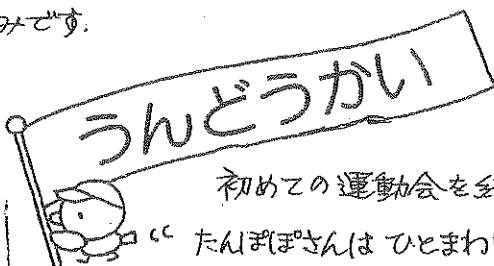 みです.
うんどうかい
初めての運動会を
たんぽぽさんは ひとまわ